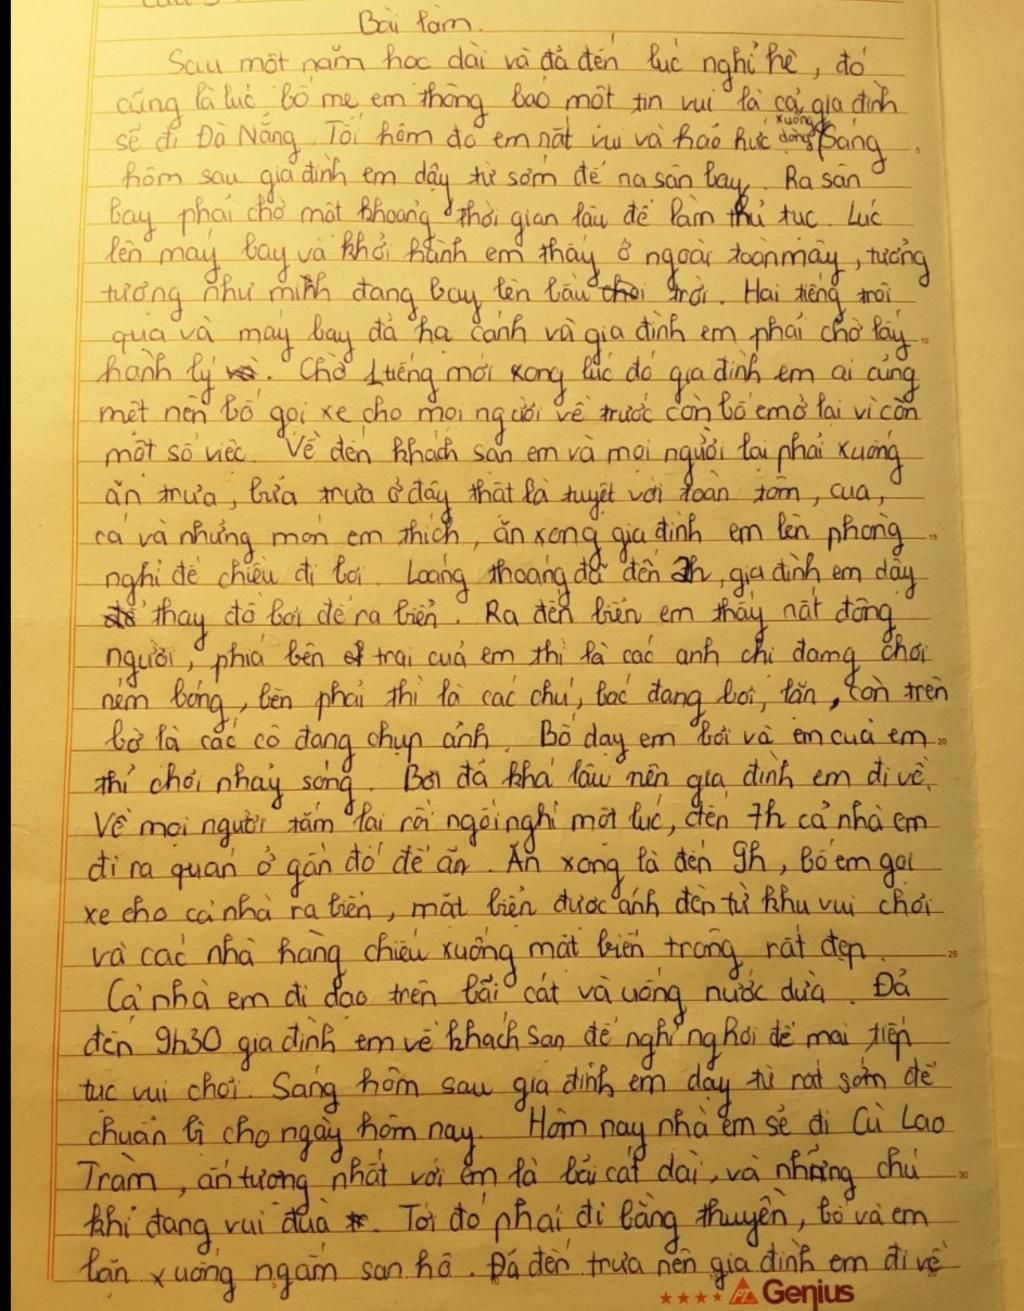 Bài làm.
Sau một năm học dài và đã đến lúc nghỉ hè, đó
cũng là lúc bố mẹ em thông báo một tin vui là cả gia đình
sẽ đi Đà Nẵng. Tối hôm đó em rất vui và háo hức xuống dòng Sáng
hôm sau gia đình em dậy từ sớm để na sân bay. Ra sân
bay phải chờ một khoảng thời gian lâu để làm thủ tục. Lúc
lên máy bay và khởi hành em thấy ở ngoài toàn mây, tưởng
tượng như mình đang bay lên bầu trời. Hai tiếng trôi
qua và máy bay đã hạ cánh và gia đình em phải chờ lấy 10
hành lý. Chờ 1 tiếng mới xong lúc đó gia đình em ai cũng
mệt nên bố gọi xe cho mọi người về trước còn bố em ở lại vì còn
một số việc. Về đến khách sạn em và mọi người lại phải xuống
ăn trưa, bữa trưa ở đây thật là tuyệt với toàn tôm, cua,
cá và những món em thích, ăn xong gia đình em lên phòng 15
nghỉ để chiều đi bơi. Loáng thoáng đã đến 2h, gia đình em dậy
thay đồ bơi để ra biển. Ra đến biển em thấy nất đông
người, phía bên trái của em thì là các anh chị đamg chơi
ném bóng, bên phải thì là các chú, bác đang bơi, lặn, còn trên
bờ là các cô đang chụp ảnh. Bố dạy em bơi và em của em 20
thì chơi nhảy sóng. Bơi đã khá lâu nên gia đình em đi về.
Về mọi người tắm lại rồi ngồi nghỉ một lúc, đến 7h cả nhà em
đi ra quán ở gần đó để ăn. Ăn xong là đến 9h, bố em gọi
xe cho cả nhà ra biển, mặt biển được ánh đèn từ khu vui chơi
và các nhà hàng chiếu xuống mặt biển trông rất đẹp. 25
Cả nhà em đi dạo trên bãi cát và uống nước dừa. Đã
đến 9h30 gia đình em về khách sạn để nghỉ nghơi để mai tiếp
tục vui chơi. Sáng hôm sau gia đình em dậy từ rất sớm để
chuẩn bị cho ngày hôm nay. Hôm nay nhà em sẽ đi Cù Lao
Tràm, ấn tượng nhất với em là bãi cát dài, và những chú 30
khỉ đang vui đùa. Tới đó phải đi bằng thuyền, bố và em
lặn xuống ngắm san hô. Đã đến trưa nên gia đình em đi về
Genius